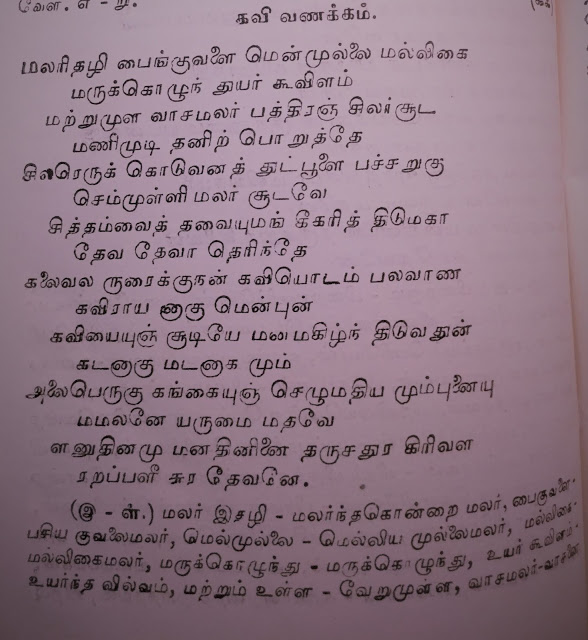 வேள. எ - று.
கவி வணக்கம்.
மலரிதழி பைங்குவளை மென்முல்லை மல்லிகை
மருக்கொழுந் துயர் கூவிளம்
மற்றுமுள வாசமலர் பத்திரஞ் சிலர்சூட
மணிமுடி தனிற் பொறுத்தே
சிலரெருக் கொடுவனத் துட்பூளை பச்சறுகு
செம்முள்ளி மலர் சூடவே
சித்தம்வைத் தவையுமங் கீகரித் திடுமகா
தேவ தேவா தெரிந்தே
கலைவல ருரைக்குநன் கவியொடம் பலவாண
கவிராய னுகு மென்புன்
கவியையுஞ் சூடியே மனமகிழ்ந் திடுவதுன்
கடனாகு மடனாக மும்
அலைபெருகு கங்கையுஞ் செழுமதிய மும்புனையு
மமலனே யருமை மதவே
ளனுதினமு மனதினினை தருசதுர கிரிவள
ரறப்பளீ சுர தேவனே.
(இ - ள்.) மலர் இதழி - மலர்ந்தகொன்றை மலர், பைகுவளை-
பசிய குவலைமலர், மெல்முல்லை - மெல்லிய முல்லைமலர், மல்லிகை-
மல்லிகைமலர், மருக்கொழுந்து - மருக்கொழுந்து, உயர் கூவிளம்-
உயர்ந்த வில்வம், மற்றும் உள்ள - வேறுமுள்ள, வாசமலர்-